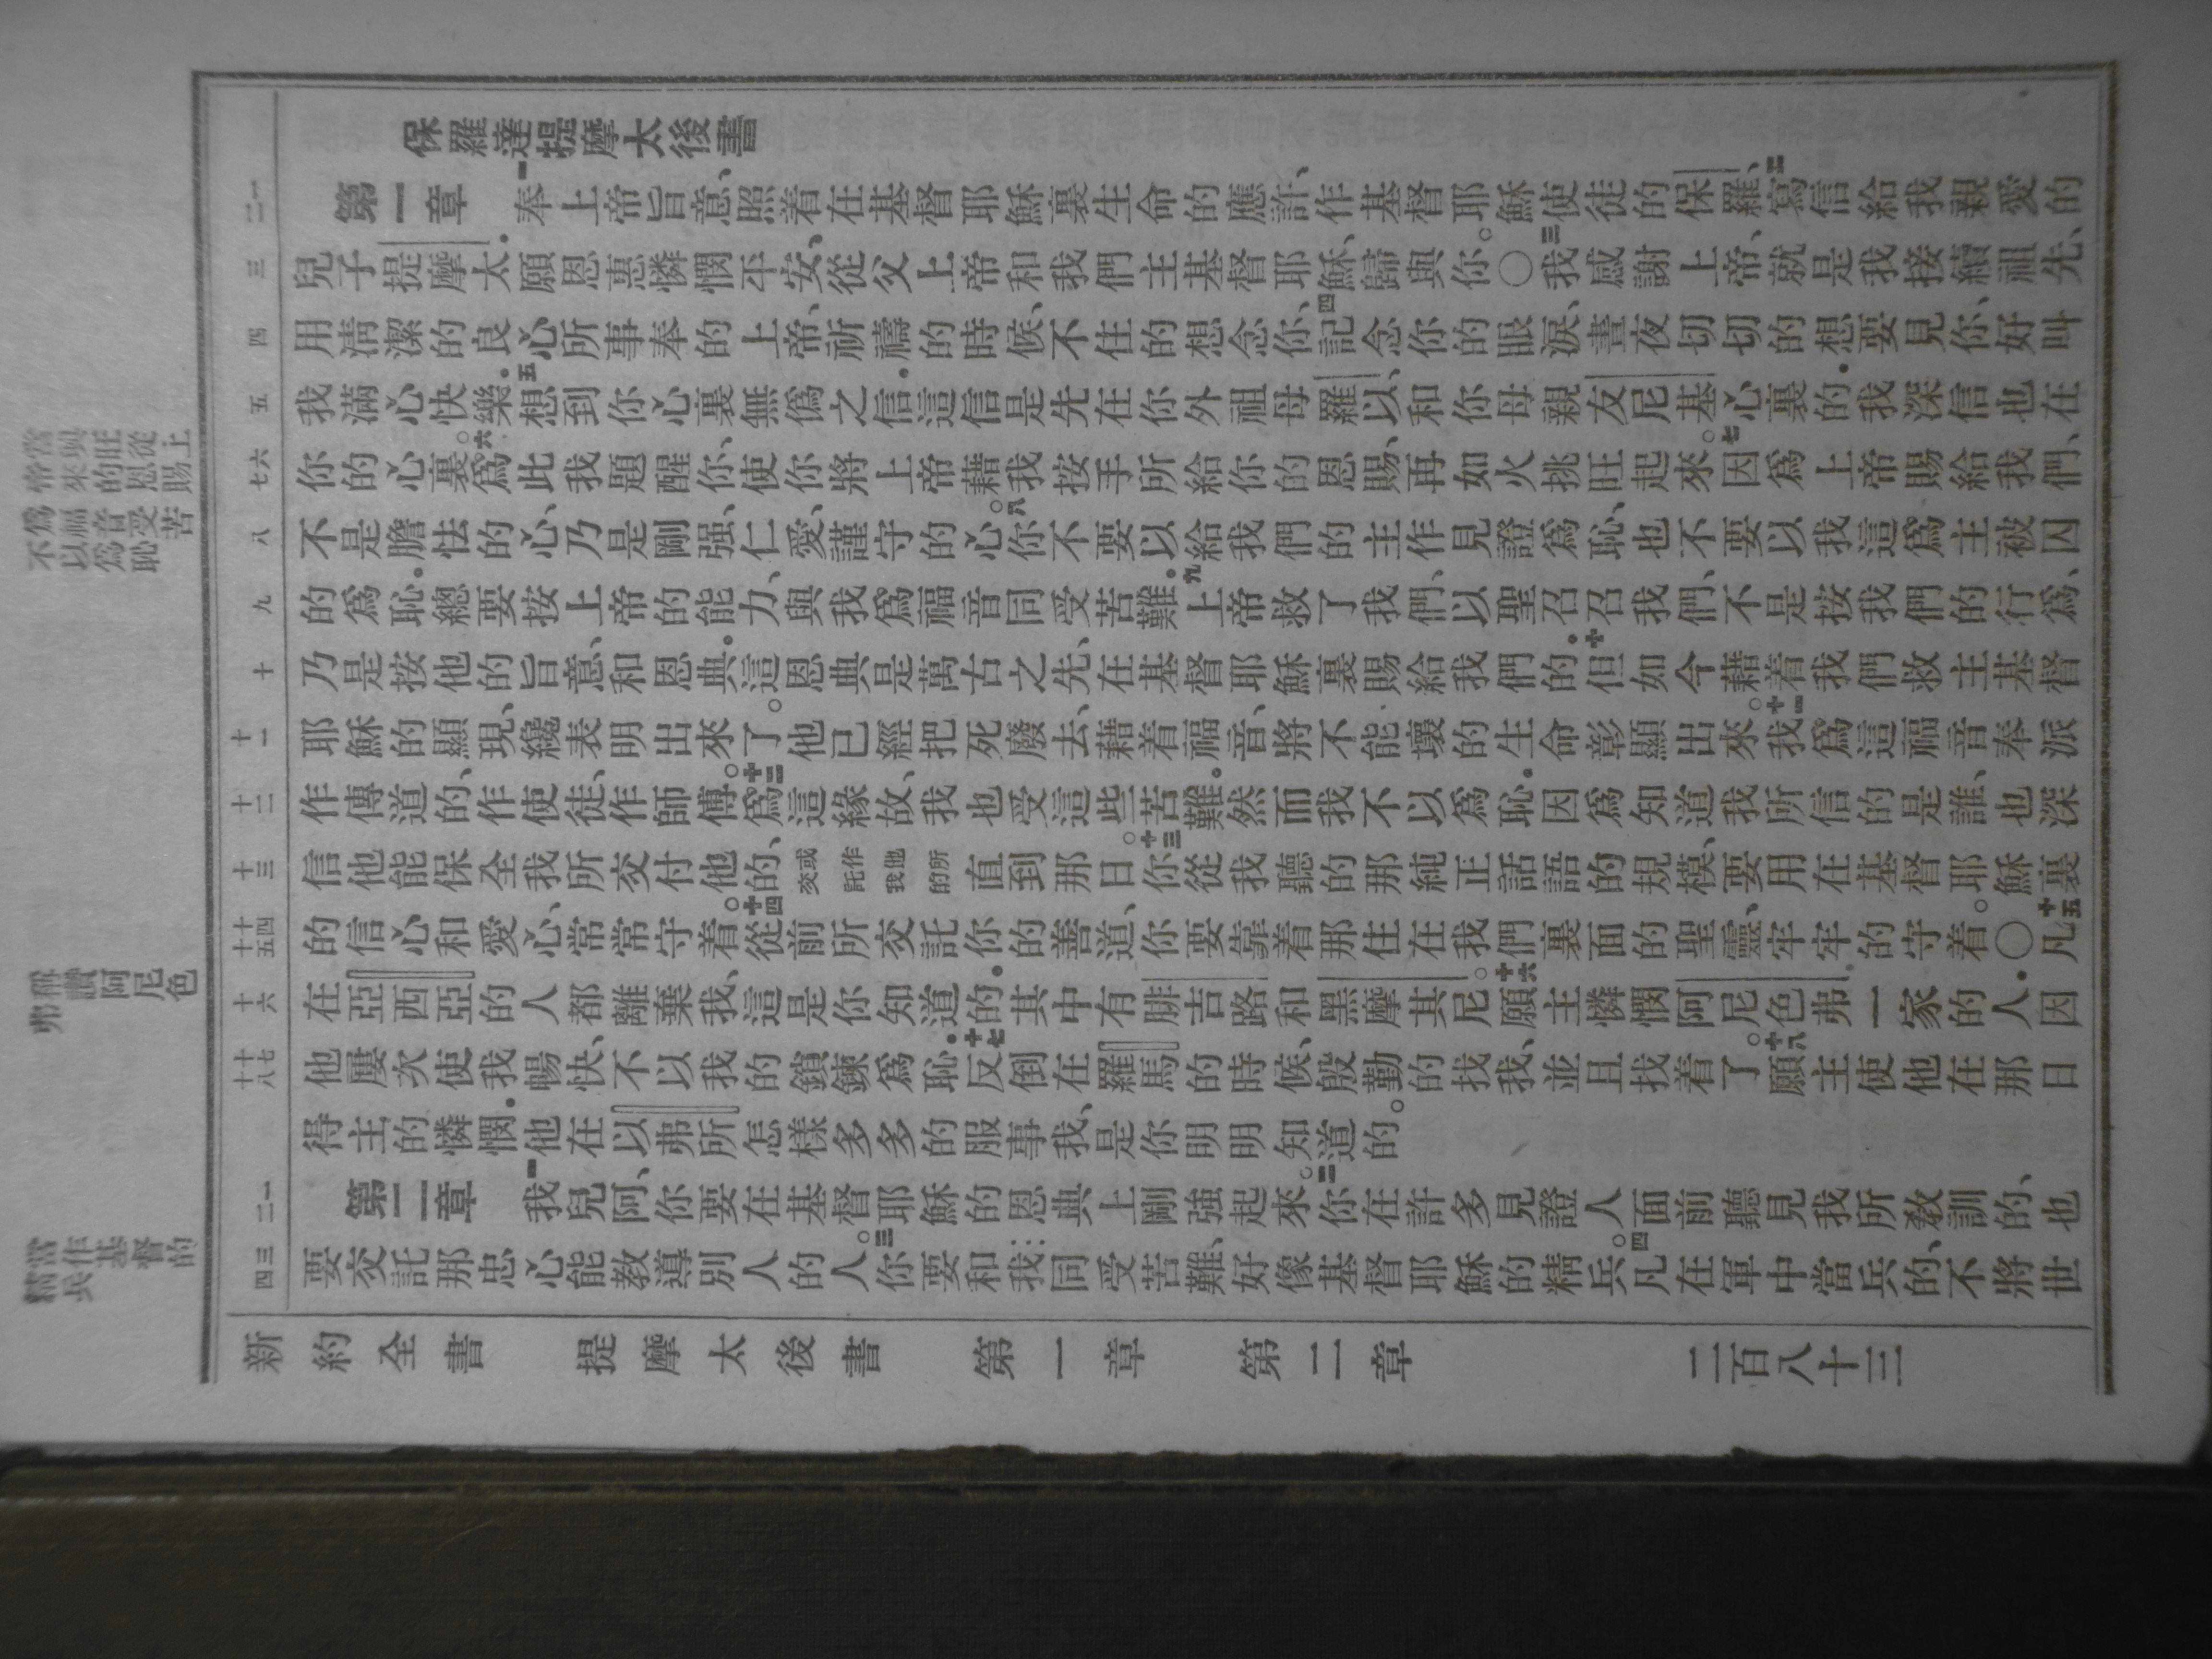 保羅達提摩太後書
第一章 一奉上帝旨意、照着在基督耶穌裏生命的應許、作基督耶穌使徒的保羅、二寫信給我親愛的
兒子提摩太.願恩惠憐憫平安、從父上帝和我們主基督耶穌、歸與你。〇三我感謝上帝、就是我接續祖先、
用清潔的良心所事奉的上帝、祈禱的時候、不住的想念你、四記念你的眼淚、晝夜切切的想要見你、好叫
我滿心快樂.五想到你心裏無僞之信.這信是先在你外祖母羅以、和你母親友尼基心裏的.我深信也在
你的心裏。六爲此我題醒你、使你將上帝藉我按手所給你的恩賜、再如火挑旺起來。七因爲上帝賜給我們、
不是膽怯的心、乃是剛强、仁愛、謹守的心。八你不要以給我們的主作見證爲恥、也不要以我這爲主被囚
的爲恥.總要按上帝的能力、與我爲福音同受苦難.九上帝救了我們、以聖召召我們、不是按我們的行爲、
乃是按他的旨意、和恩典.這恩典是萬古之先、在基督耶穌裏賜給我們的.十但如今藉着我們救主基督
耶穌的顯現、纔表明出來了。他已經把死廢去、藉着福音、將不能壞的生命彰顯出來。十一我爲這福音奉派
作傳道的、作使徒、作師傅。十二爲這緣故、我也受這些苦難.然而我不以爲恥.因爲知道我所信的是誰、也深
信他能保全我所交付他的、或作他所交託我的直到那日。十三你從我聽的那純正話語的規模、要用在基督耶穌裏
的信心和愛心、常常守着。十四從前所交託你的善道、你要靠着那住在我們裏面的聖靈、牢牢的守着。〇十五凡
在亞西亞的人都離棄我、這是你知道的.其中有腓吉路和黑摩其尼。十六願主憐憫阿尼色弗一家的人.因
他屢次使我暢快、不以我的鎖鍊爲恥.十七反倒在羅馬的時候、殷勤的找我、並且找着了。十八願主使他在那日
得主的憐憫.他在以弗所怎樣多多的服事我、是你明明知道的。
第二章 一我兒阿、你要在基督耶穌的恩典上剛強起來。二你在許多見證人面前聽見我所教訓的、也
要交託那忠心能教導別人的人。三你要和我同受苦難、好像基督耶穌的精兵。四凡在軍中當兵的、不將世
新約全書 提摩太後書 第一章 第二章 二百八十三
一二
三
四
五
六七
八
九
十
十一
十二
十三
十四十五
十六
十七十八
一二
三四
上
賜
從
恩
旺
的
與
來
當
帝
苦
受
恥
音
爲
福
以
爲
不
稱讚阿尼色
弗
當作基督的
精兵